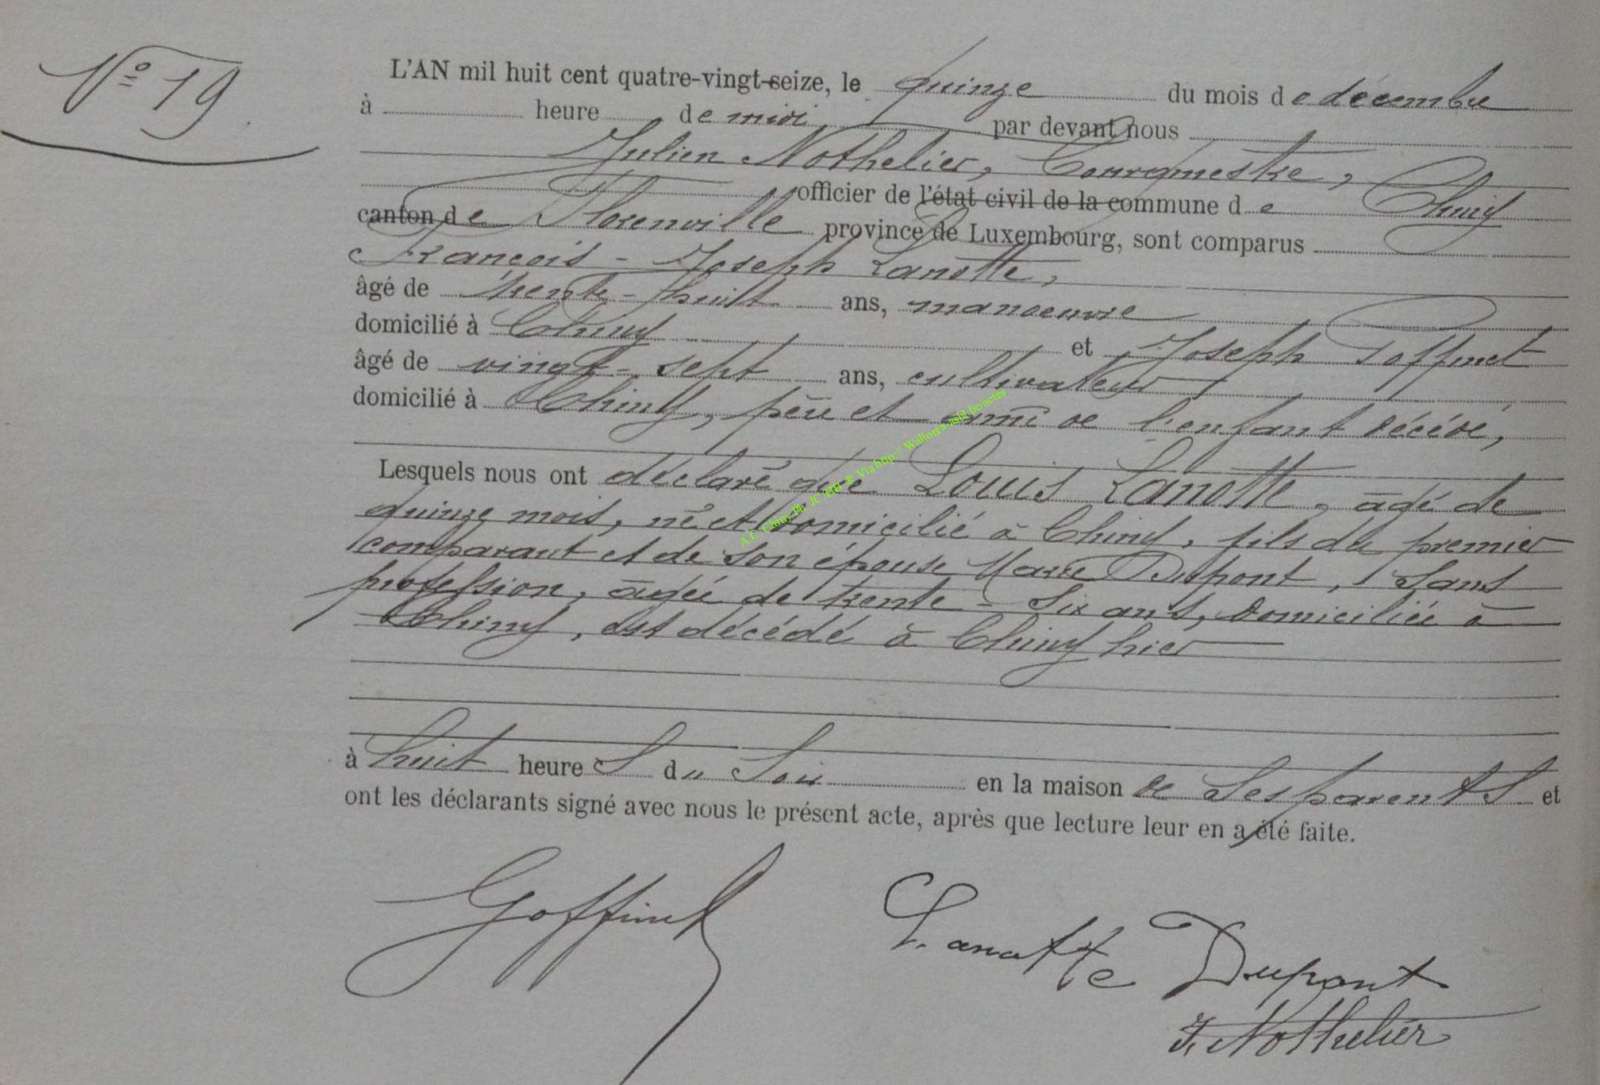 N° 19
L'AN mil huit cent quatre-vingt-seize, le quinze du mois de décembre
à heure de midi par devant nous
Julien Nothelier, Bourgmestre,
officier de l'état civil de la commune de Chiny
canton de Florenville province de Luxembourg, sont comparus
François-Joseph Lanotte,
âgé de trente-huit ans, manoeuvre
domicilié à Chiny et Joseph Goffinet
âgé de vingt-sept ans, cultivateur
domicilié à Chiny, père et ami de l'enfant décédé,
Lesquels nous ont déclaré que Louis Lanotte, âgé de
quinze mois, né et domicilié à Chiny, fils du premier
comparant et de son épouse Marie Dupont, sans
profession, âgée de trente-six ans, domiciliée à
Chiny, est décédé à Chiny hier
à huit heures du soir en la maison de ses parents et
ont les déclarants signé avec nous le présent acte, après que lecture leur en a été faite.
Goffinet
Lanotte Dupont
J. Nothelier